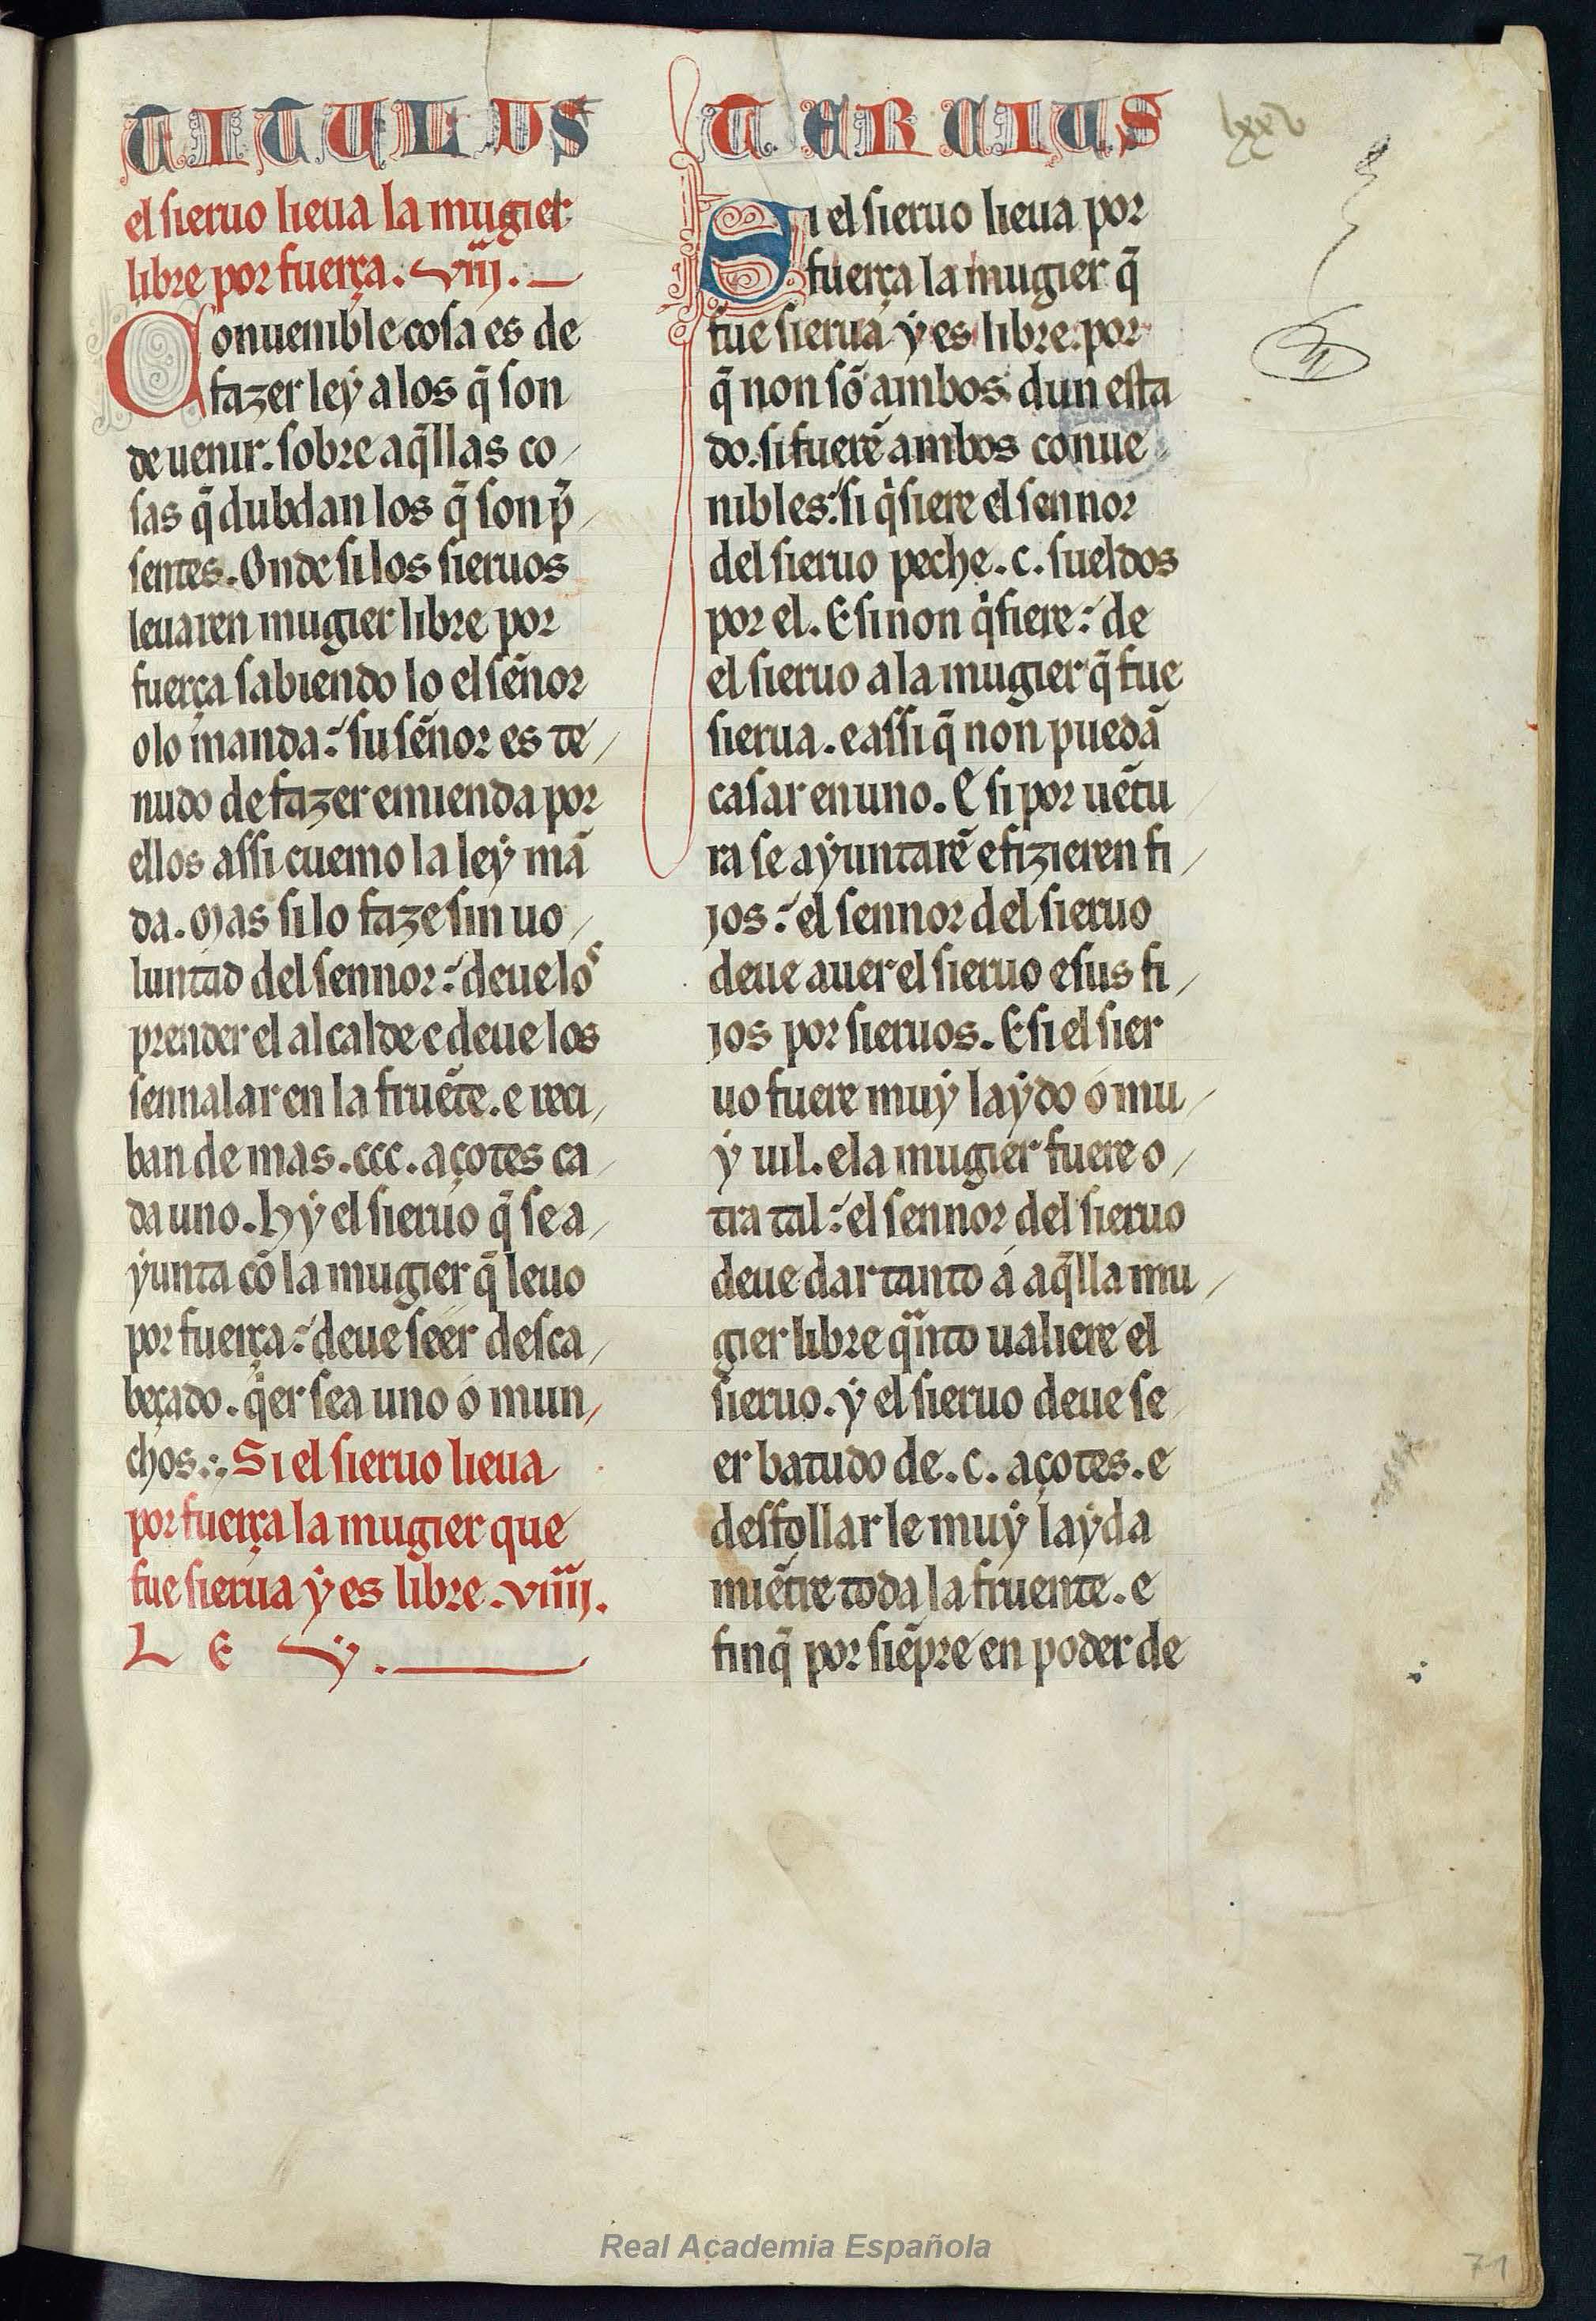 TITULUS TERCIUS
lxxv
el sieruo lieua la mugier
libre por fuerça. viii.
Conuenible cosa es de
fazer leẏ a los q̃ son
de uenir. sobre aq̃llas co/
sas q̃ dubdan los q̃ son p̃/
sentes. Onde si los sieruos
leuaren mugier libre por
fuerça sabiendo lo el sẽnor
o lo manda: su sẽnor es te/
nudo de fazer emienda por
ellos assi cuemo la leẏ mã
da. Mas si lo faze sin uo/
luntad del sennor: deue los
prender el alcalde e deue los
sennalar en la fruẽte. e reci/
ban de mas .ccc. açotes ca/
da uno. Hẏ el sieruo q̃ se a/
ẏunta cõ la mugier q̃ leuo
por fuerça: deue séér desca/
beçado. q̇er sea uno o mun/
chos. Si el sieruo lieua
por fuerça la mugier que
fue sierua ẏ es libre. viiii.
L E Ẏ.
Si el sieruo lieua por
fuerça la mugier q̃
fue sierua ẏ es libre: por
q̃ non sõ ambos dun esta
do. si fuerẽ ambos conue
nibles: si q̇siere el sennor
del sieruo peche .c. sueldos
por el. E si non q̇siere: de
el sieruo a la mugier q̃ fue
sierua. e assi q̃ non puedã
casar en uno. E si por uẽtu/
ra se aẏuntarẽ e fizieren fi/
jos: el sennor del sieruo
deue auer el sieruo e sus fi/
jos por sieruos. E si el sier
uo fuere muẏ laẏdo o mu/
ẏ uil. e la mugier fuere o/
tra tal: el sennor del sieruo
deue dar tanto á aq̃lla mu/
gier libre qᷓnto ualiere el
sieruo. ẏ el sieruo deue se
er batudo de .c. açotes. e
desfollar le muẏ laẏda
miẽtre toda la fruente. e
finq̃ por siẽpre en poder de
71
Real Academia Española